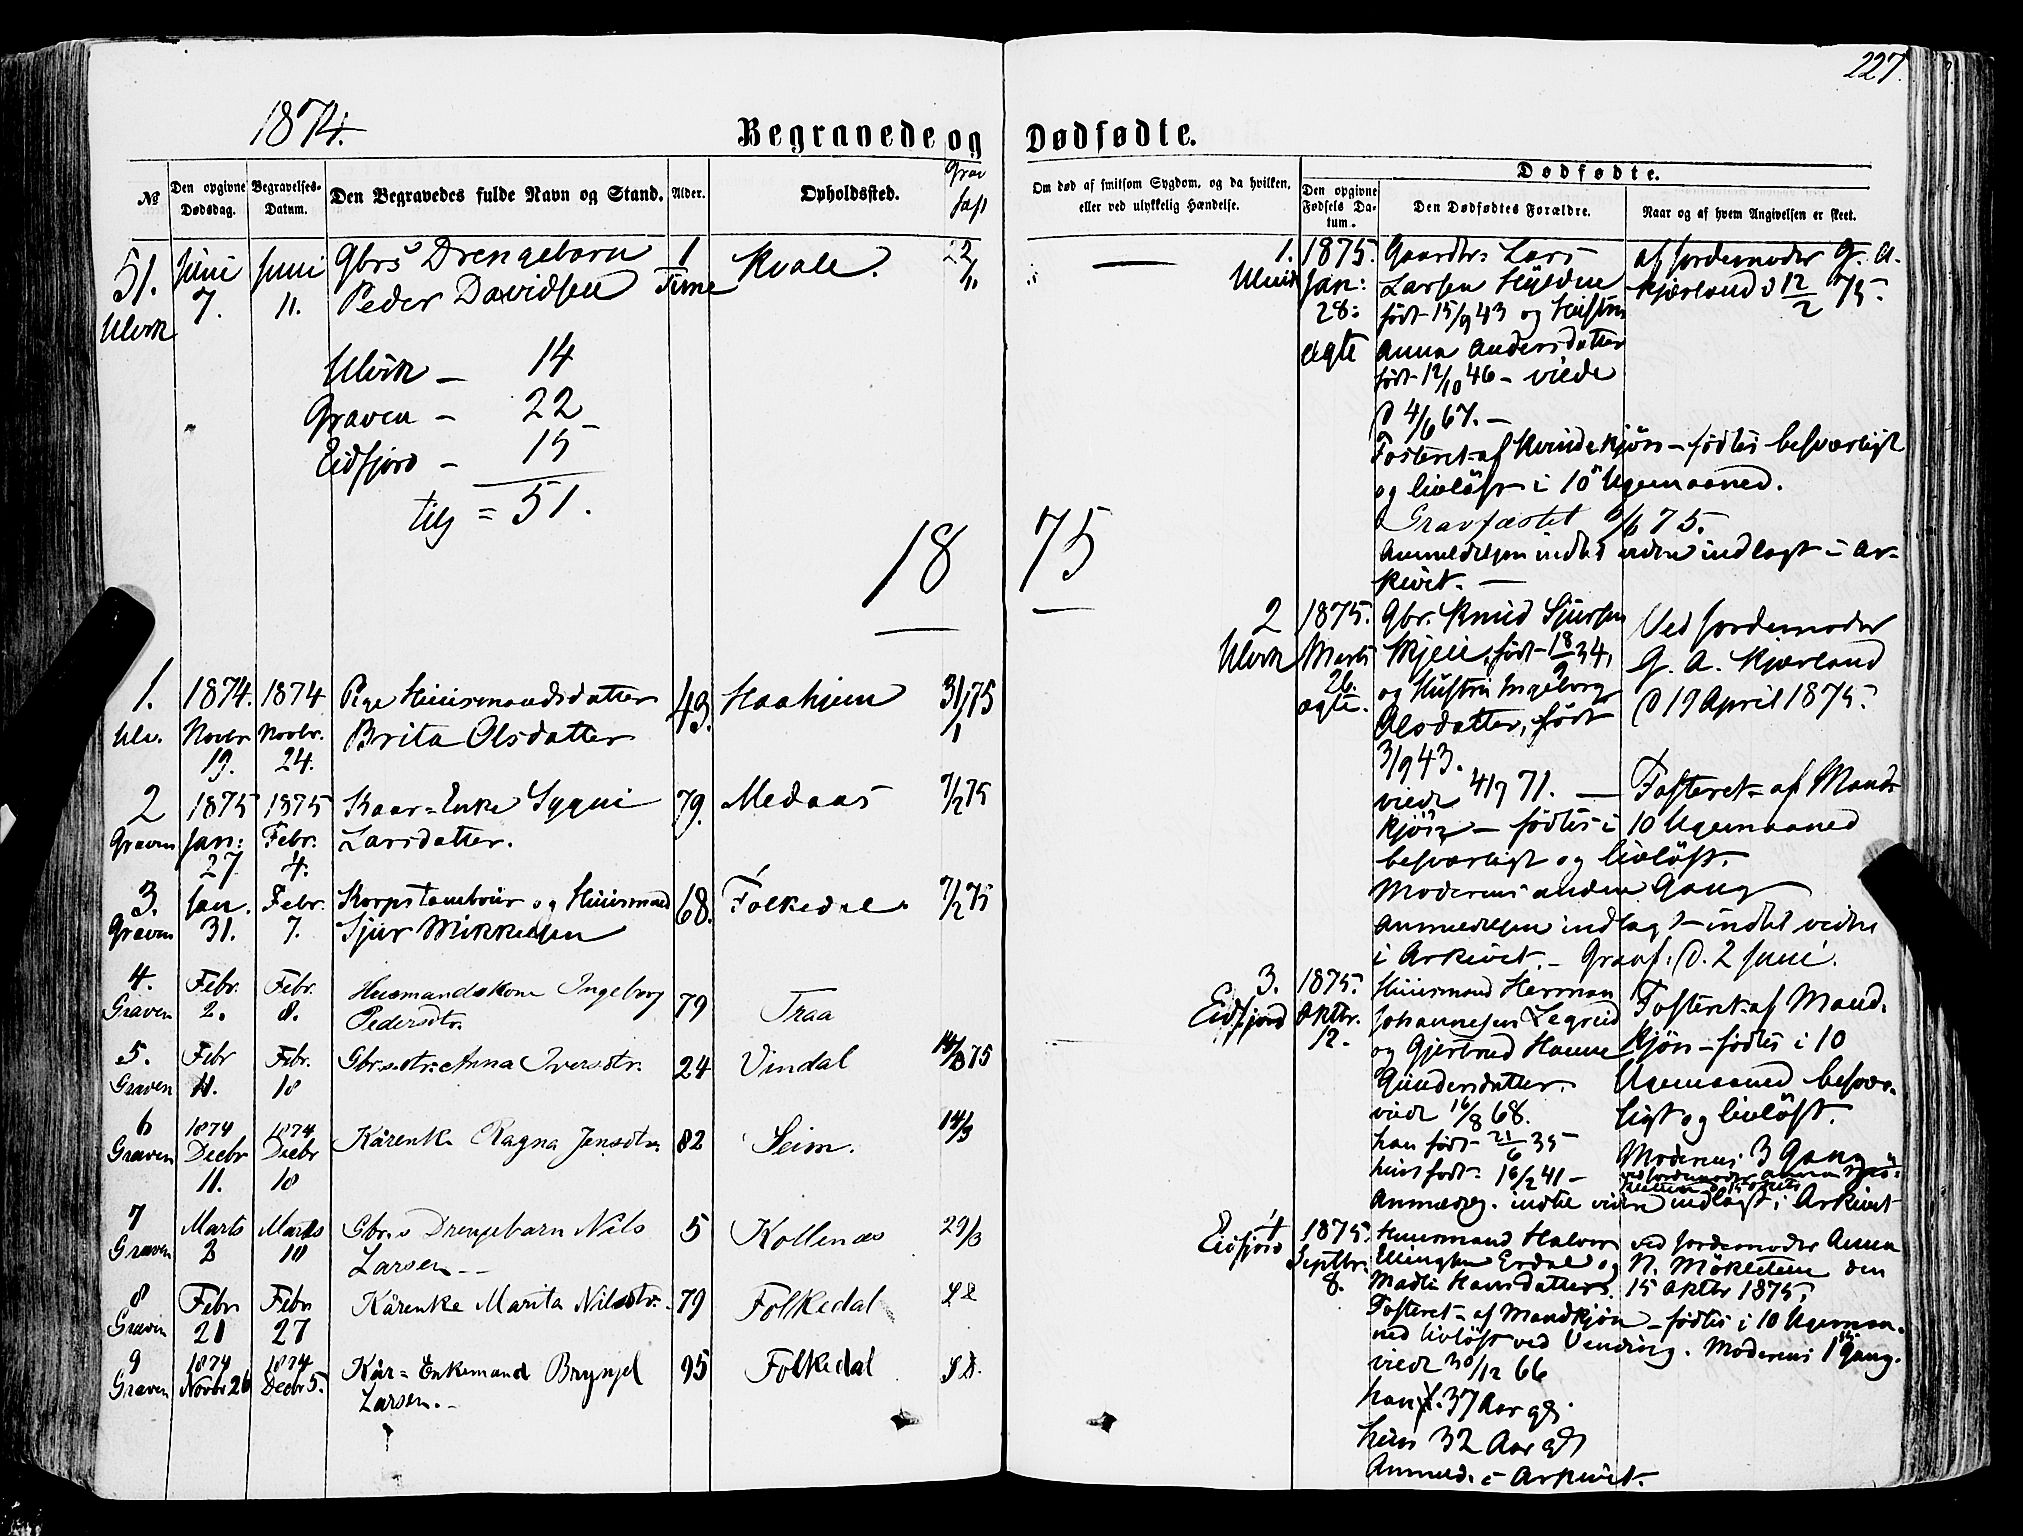 227.
1874.
Begravede og Dødfødte.
№
Den opgivne Dødsdag.
Begravelses-Datum.
Den Begravedes fulde Navn og Stand.
Alder.
Opholdssted.
Grav fæst
Om død af smitsom Sygdom, og da hvilken, eller ved ulykkelig Hændelse.
Dødfødte.
Den opgivne Fødsels Datum.
Den Dødfødtes Forældre.
Naar og af hvem Angivelsen er skeet.
51. Juni Juni Gbrs Drengebarn 1 Kvale.
Ulvik 7. 11. Peder Davidsen Time
Ulvik – 14
Graven – 22
Eidfjord – 15
tils = 51.
1875
1. 1874. 1874 Pige Huusmandsdatter 43. Haahjem 31/1 75
Ulv. Novbr Novbr. Brita Olsdatter
19. 24.
2 1875 1875 Kaar=Enke Sygni 79. Medaas 7/2 75
Graven Jan: Febr. Larsdatter.
27 4.
3. Jan. Febr. Korpstambour og Huusmand 68. Folkedal 7/2 75
Graven 31. 7. Sjur Mikkelsen
4. Febr. Febr. Husmandskone Ingeborg 79 Traa
Graven 2. 8. Pedersdtr.
5. Febr Febr. Gbrsdtr: Anna Iversdtr. 24 Vindal 14/3 75
Graven 11. 18
6 1874 1874 Kårenke Ragna Jensdtr 82 Seim. 14/3
Graven Decbr Decbr
11. 18
7 Marts Marts Gbr.s Drengebarn Nils 5 Kollenæs 29/3
Graven 3 10 Larsen. –
8 Febr Febr Kårenke Marita Nilsdtr. 79 Folkedal
Graven 21 27
9 1874 1874 Kår=Enkemand Brynjel 95 Folkedal
Graven Novbr 26 Decbr 5. Larsen. –
1. 1875. Gaardbr: Lars af Jordemoder G. A.
Ulvik Jan: Larsen Hyldne Kjærland d 12/2 75.
28: født 15/9 43 og Hustru
ægte Anna Andersdatter
født 12/10 46 – viede
d 4/6 67. –
Fosteret af Kvindekjøn – fødtes besværligt
og livløst i 10 Ugemaaned.
Gravfæstet 6/6 75.
Anmeldelsen indtil videre indlagt i Ar-
kivet. –
2 1875. Gbr. Knud Sjursen Ved Jordemoder
Ulvik Marts Skjeie, født 18/9 34, G. A. Kjærland
26. og Hustru Ingeborg d 19 April 1875.
ægte. Olsdatter, født
3/9 43.
viede 4/7 71. – Fosteret af Mand-
kjøn – fødtes i 10 Ugemaaned
besværligt og livløst.
Moderens anden Gang
Anmeldelsen indlagt indtil videre
i Arkivet. – Gravf. d. 2 Juni.
3. 1875. Huusmand Herman Fosteret af Mand-
Eidfjord Oktbr. Johannesen Legreid kjøn – fødtes i 10
12. og Gjertrud Hanne Ugemaaned besvær-
Gundersdatter ligt og livløst.
viede 16/8 68. Moderens 3 Gang
han født 21/6 35
hun født 16/2 41 –
Anmeldelg. indtil videre indlagt i Arkivet
4 1875. Huusmand Halvor ved Jordemoder Anna
Eidfjord Septbr. Ellingsen Erdal og N. Mökletun den
8. Madli Hansdatter. 15 Oktbr 1875.
Fosteret – af Mandkjøn – fødtes i 10 Ugemaa-
ned livløst ved Vending. Moderens 1ste Gang.
viede 30/12 66
han f. 37 Aar gl.
hun 32 Aar gl
Anmeld. i Arkivet.